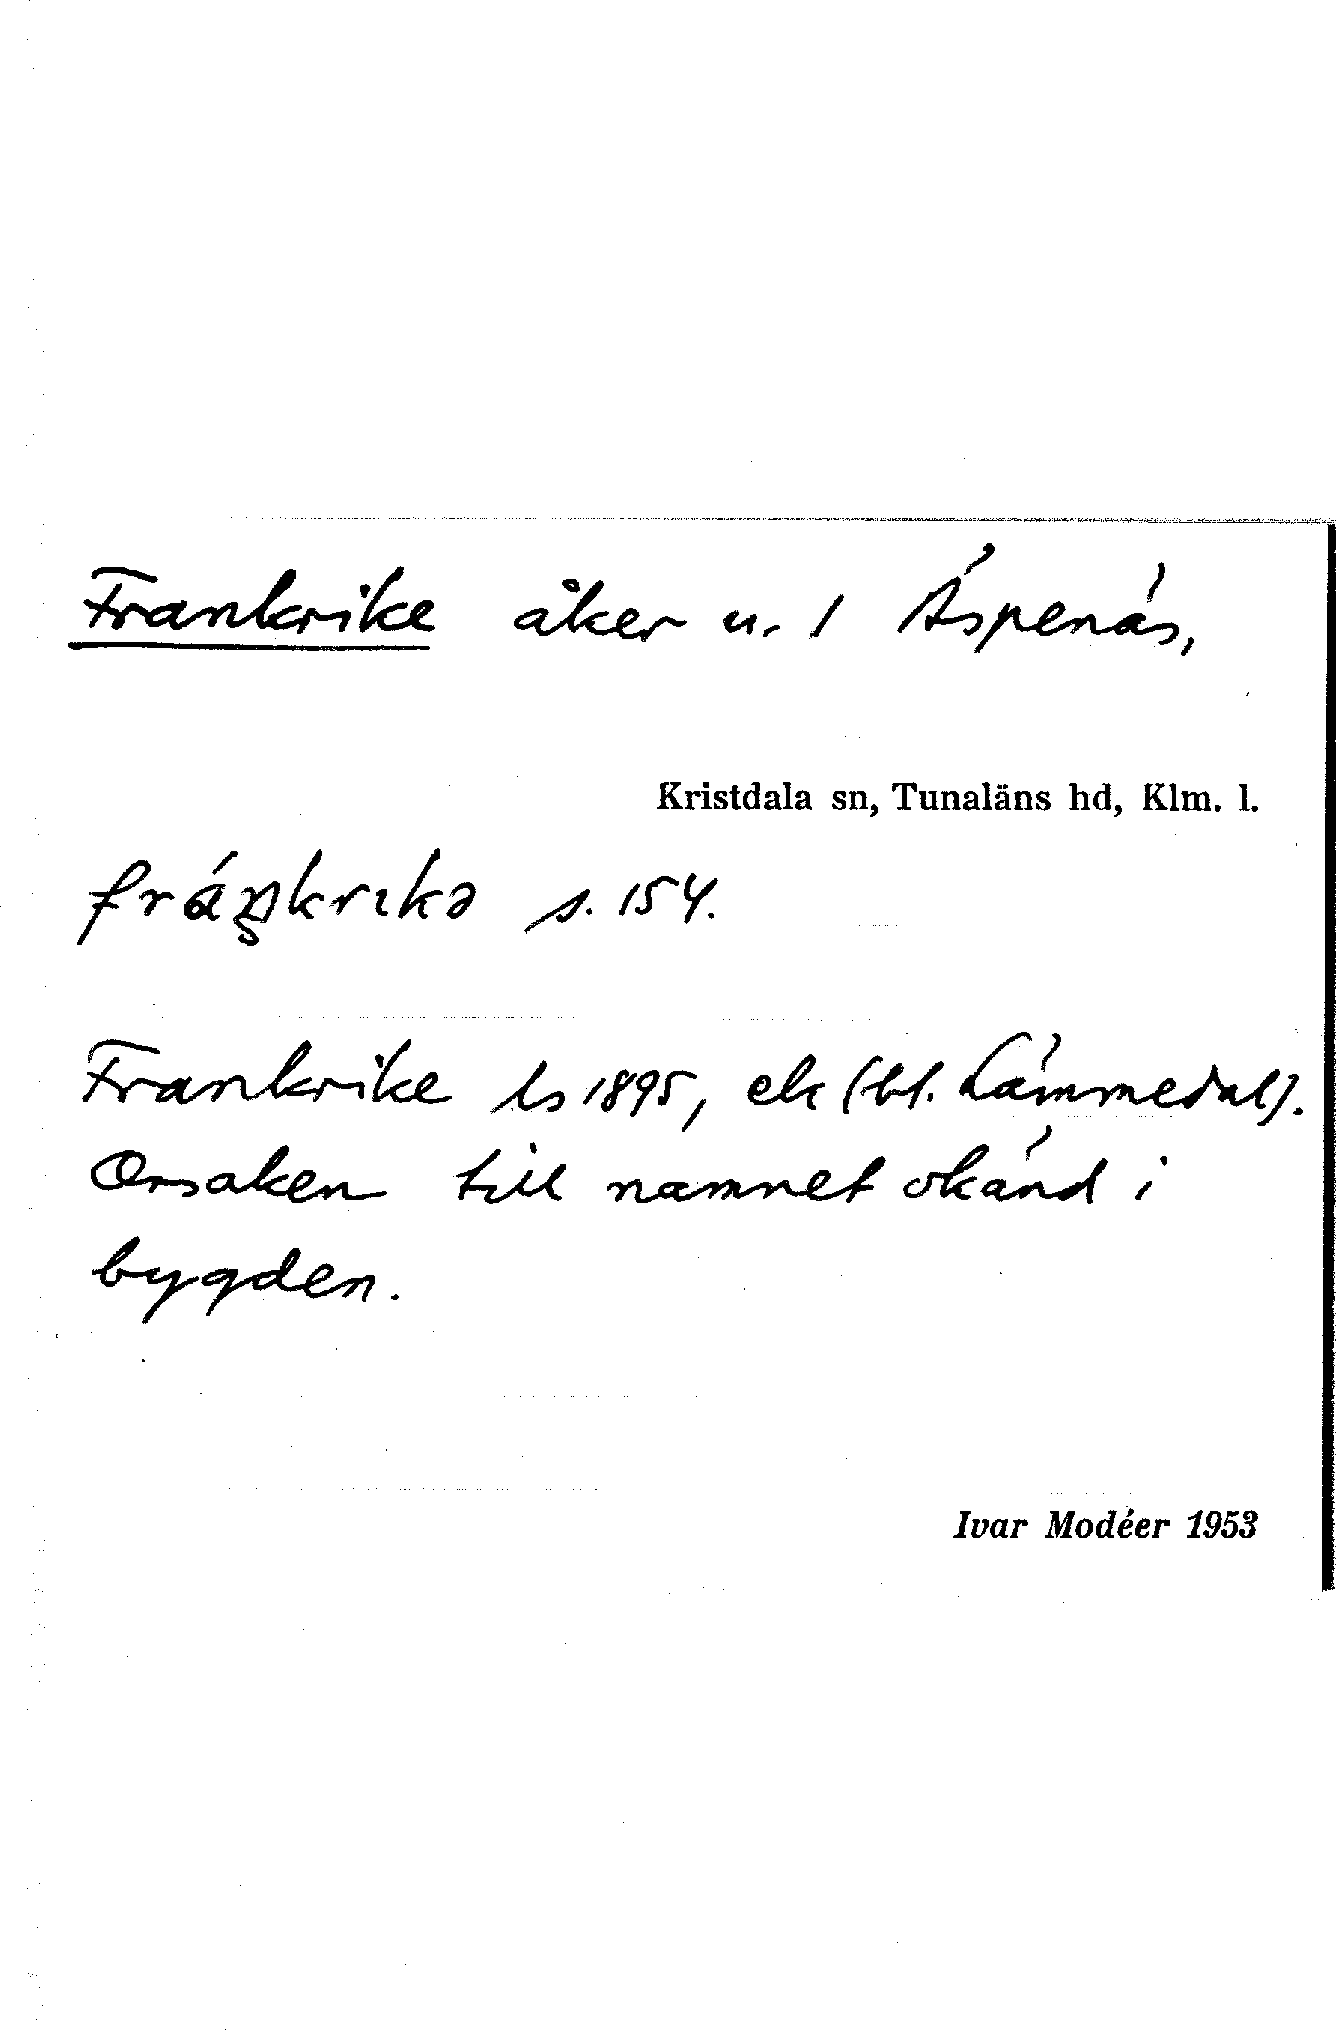 Frankrike åker u. 1 Äspenäs,
Kristdala sn, Tunaläns hd, Klm. l.
fráŋkrıkə s. 154.
Frankrike ls 1895, ek (bl. Lämmedal).
Orsaken till namnet okänd i
bygden.
Ivar Modéer 1953